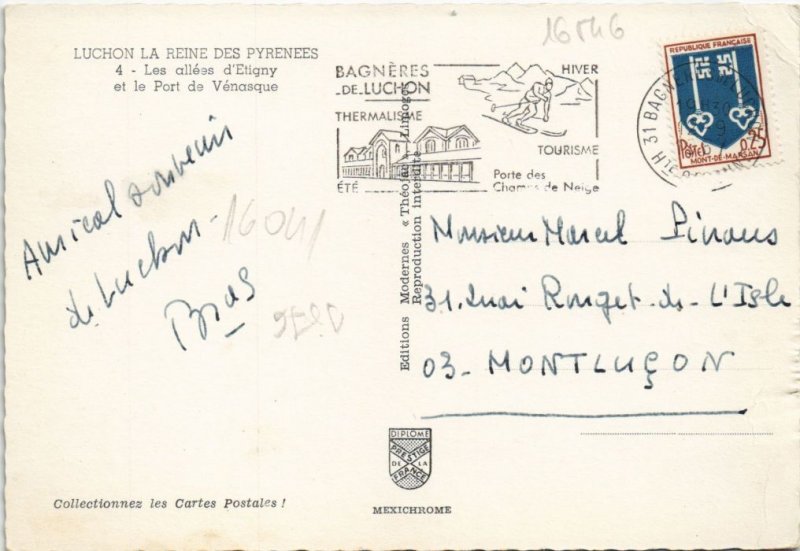 LUCHON LA REINE DES PYRENEES
4 - Les allées d'Etigny
et le Port de Vénasque
16846
BAGNÈRES
-DE-LUCHON
THERMALISME
ÉTÉ
HIVER
TOURISME
Porte des
Champs de Neige
REPUBLIQUE FRANÇAISE
Postes
0,25
MONT-DE-MARSAN
31 BAGNERES
Amical souvenir
de Luchon -
16041
Editions Modernes « Théojac » Limoges
Reproduction interdite
Monsieur Marcel
31. Quai Rouget-de-L'Isle
03- MONTLUÇON
DIPLOME
PRESTIGE
DE LA
FRANCE
Collectionnez les Cartes Postales !
MEXICHROME